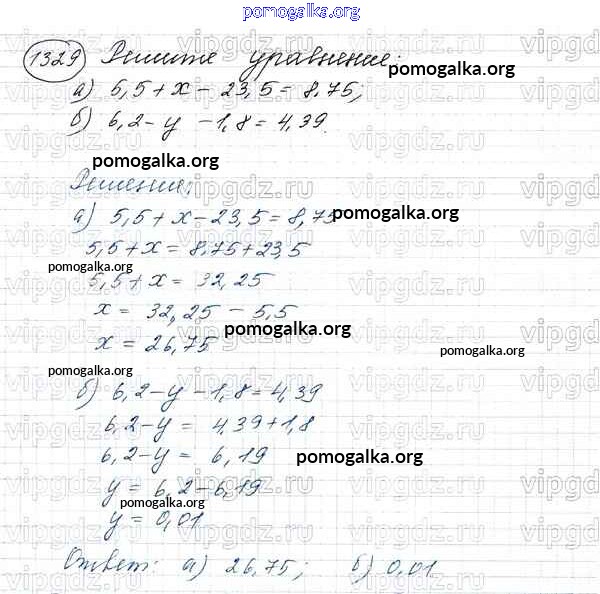 pomogalka.org
1329 Решите уравнение:
а) 5,5 + х - 23,5 = 8,75;
б) 6,2 - у - 1,8 = 4,39.
Решение:
а) 5,5 + х - 23,5 = 8,75
5,5 + х = 8,75 + 23,5
5,5 + х = 32,25
х = 32,25 - 5,5
х = 26,75
б) 6,2 - у - 1,8 = 4,39
6,2 - у = 4,39 + 1,8
6,2 - у = 6,19
у = 6,2 - 6,19
у = 0,01
Ответ: а) 26,75; б) 0,01
pomogalka.org
pomogalka.org
pomogalka.org
pomogalka.org
pomogalka.org
pomogalka.org
pomogalka.org
pomogalka.org
pomogalka.org
vipgdz.ru